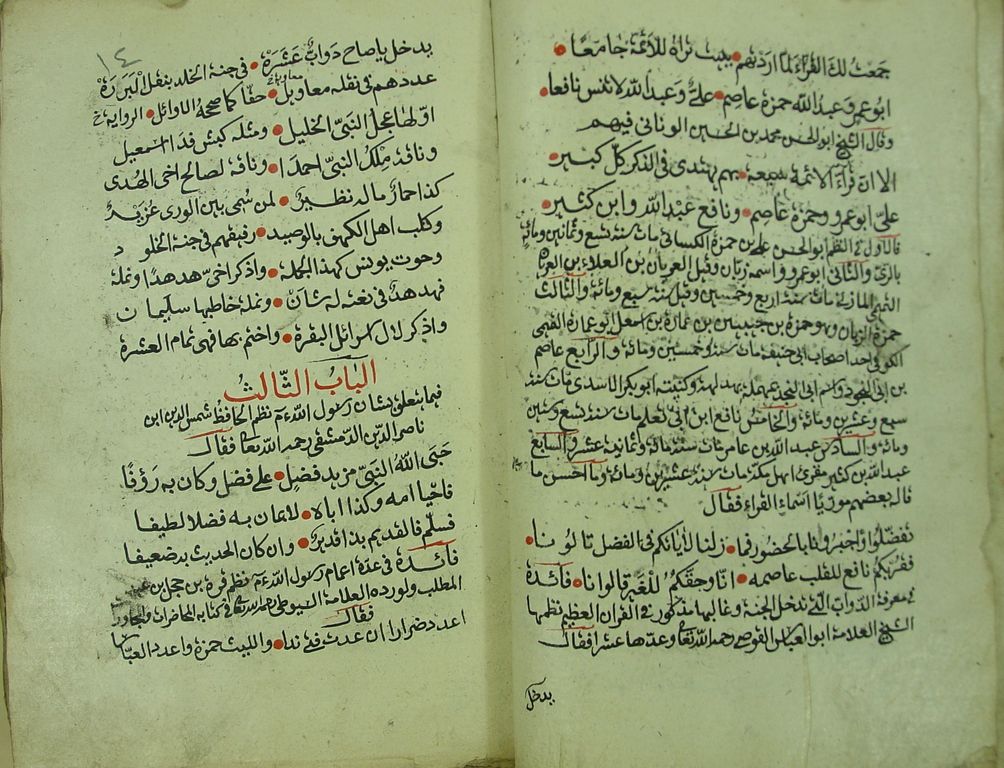 جمعت لك القراء لما اردتهم ببيت تراه للائمة جامعا
ابو عمرو عبد الله حمزة عاصم علي وعبد الله لا تنس نافعا
وقال الشيخ ابو الحسن محمد بن الحسين الوناني فيهم
الا ان قراء الائمة سبعة بهم يهتدى في الذكر كل كبير
علي ابو عمرو وحمزة عاصم ونافع عبد الله وابن كثير
فالاول في النظم ابو الحسن علي بن حمزة الكسائي مات سنة تسع وثمانين ومائة
بالري والثاني ابو عمرو واسمه زبان وقيل العريان بن العلاء بن العراة
المازني مات سنة اربع وخمسين وقيل سنة سبع ومائة والثالث
حمزة الزيات وهو حمزة بن حبيب بن عمارة بن اسمعيل ابو عمارة التيمي
الكوفي احد اصحاب ابي حنيفة مات سنة وخمسين ومائة والرابع عاصم
بن ابي النجود واسم ابي النجود بهدلة وكنيته ابو بكر الاسدي مات سنة
سبع وعشرين ومائة والخامس نافع ابن ابي نعيم مات سنة تسع وستين
ومائة والسادس عبد الله بن عامر مات سنة مائة وثمانية عشر والسابع
عبد الله بن كثير مقرئ اهل مكة مات سنة عشرين ومائة وما احسن ما
قاله بعضهم موريا اسماء القراء فقال
تفضلوا واجبروا بالحضور فما زلنا لاياتكم في الفضل تالونا
فقربكم نافع للقلب عاصمه انا وحقكم للغير قالوا نا فائدة
في معرفة الدواب التي تدخل الجنة وغالبها مذكور في القران العظيم نظمها
الشيخ العلامة ابو العباس القوصي رحمه الله تعالى وعدتها عشرا فقال
يدخل
١٤
يدخل يا صاح دواب عشرة في جنة الخلد بنقل البررة
عددهم في نقله معاويل حقا كما صححه الاوائل الرواية
اولها عجل النبي الخليل ومثله كبش فدا اسمعيل
وناقة ملك النبي احمدا وناقة لصالح اخي الهدى
كذا حمار ما له نظير لمن سمي بين الورى عزير
وكلب اهل الكهف بالوصيد رفيقهم في جنة الخلود
وحوت يونس كهذا الجملة واذكر اخي هدهدا ونملة
فهدهد في نعته له شان ونملة خاطبها سليمان
واذكر لال اسرائل البقرة واختم بها فهي تمام العشرة
الباب الثالث
فيما يتعلق بشان رسول الله نظم الحافظ شمس الدين ابن
ناصر الدين الدمشقي رحمه الله تعالى فقال
حبى الله النبي مزيد فضل على فضل وكان به رؤفا
فاحيا امه وكذا اباه لايمان به فضلا لطيفا
فسلم فالقديم بذا قدير وان كان الحديث به ضعيفا
فائدة في عدة اعمام رسول الله نظم بن حجل بن عبد
المطلب واورده العلامة السيوطي في كتابه المحاضرات والمحاورات
فقال
اعدد ضرارا ان عددت فتى ندا والليث حمزة واعدد العباسا